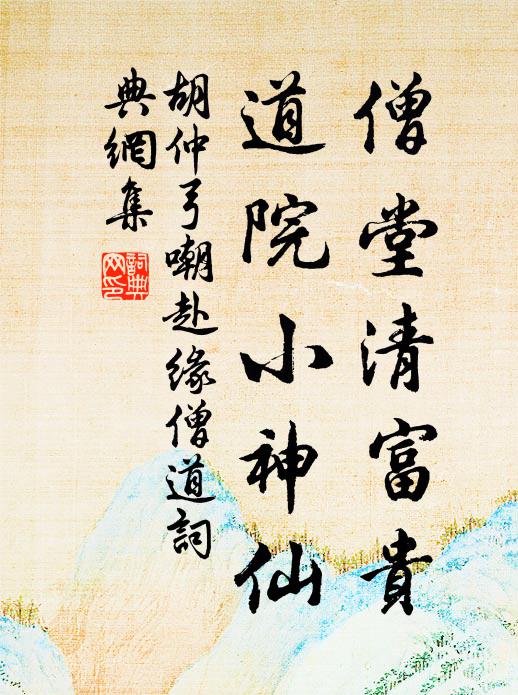 僧堂清富貴
道院小神仙
胡仲弓嘲赴緣僧道詞
典網集
詞典網印